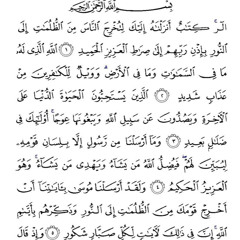 بِسْمِ ٱللَّهِ ٱلرَّحْمَٰنِ ٱلرَّحِيمِ
الٓر ۚ كِتَٰبٌ أَنزَلْنَٰهُ إِلَيْكَ لِتُخْرِجَ ٱلنَّاسَ مِنَ ٱلظُّلُمَٰتِ إِلَى
ٱلنُّورِ بِإِذْنِ رَبِّهِمْ إِلَىٰ صِرَٰطِ ٱلْعَزِيزِ ٱلْحَمِيدِ ١ ٱللَّهِ ٱلَّذِى لَهُۥ
مَا فِى ٱلسَّمَٰوَٰتِ وَمَا فِى ٱلْأَرْضِ ۗ وَوَيْلٌ لِّلْكَٰفِرِينَ مِنْ
عَذَابٍ شَدِيدٍ ٢ ٱلَّذِينَ يَسْتَحِبُّونَ ٱلْحَيَوٰةَ ٱلدُّنْيَا عَلَى
ٱلْءَاخِرَةِ وَيَصُدُّونَ عَن سَبِيلِ ٱللَّهِ وَيَبْغُونَهَا عِوَجًا ۚ أُو۟لَٰٓئِكَ فِى
ضَلَٰلٍۭ بَعِيدٍ ٣ وَمَآ أَرْسَلْنَا مِن رَّسُولٍ إِلَّا بِلِسَانِ قَوْمِهِۦ
لِيُبَيِّنَ لَهُمْ ۖ فَيُضِلُّ ٱللَّهُ مَن يَشَآءُ وَيَهْدِى مَن يَشَآءُ ۚ وَهُوَ
ٱلْعَزِيزُ ٱلْحَكِيمُ ٤ وَلَقَدْ أَرْسَلْنَا مُوسَىٰ بِـَٔايَٰتِنَآ أَنْ
أَخْرِجْ قَوْمَكَ مِنَ ٱلظُّلُمَٰتِ إِلَى ٱلنُّورِ وَذَكِّرْهُم بِأَيَّىٰمِ
ٱللَّهِ ۚ إِنَّ فِى ذَٰلِكَ لَءَايَٰتٍ لِّكُلِّ صَبَّارٍ شَكُورٍ ٥ وَإِذْ قَالَ